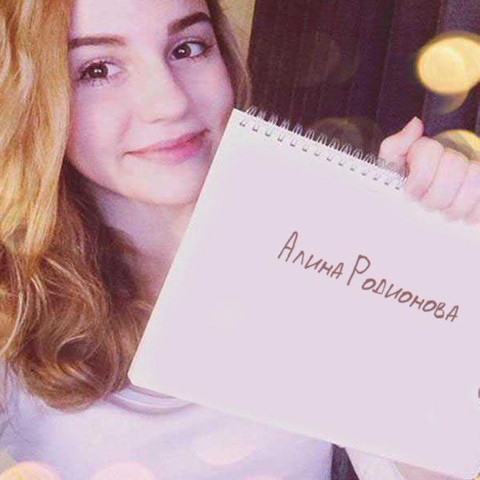 Алина Родионова